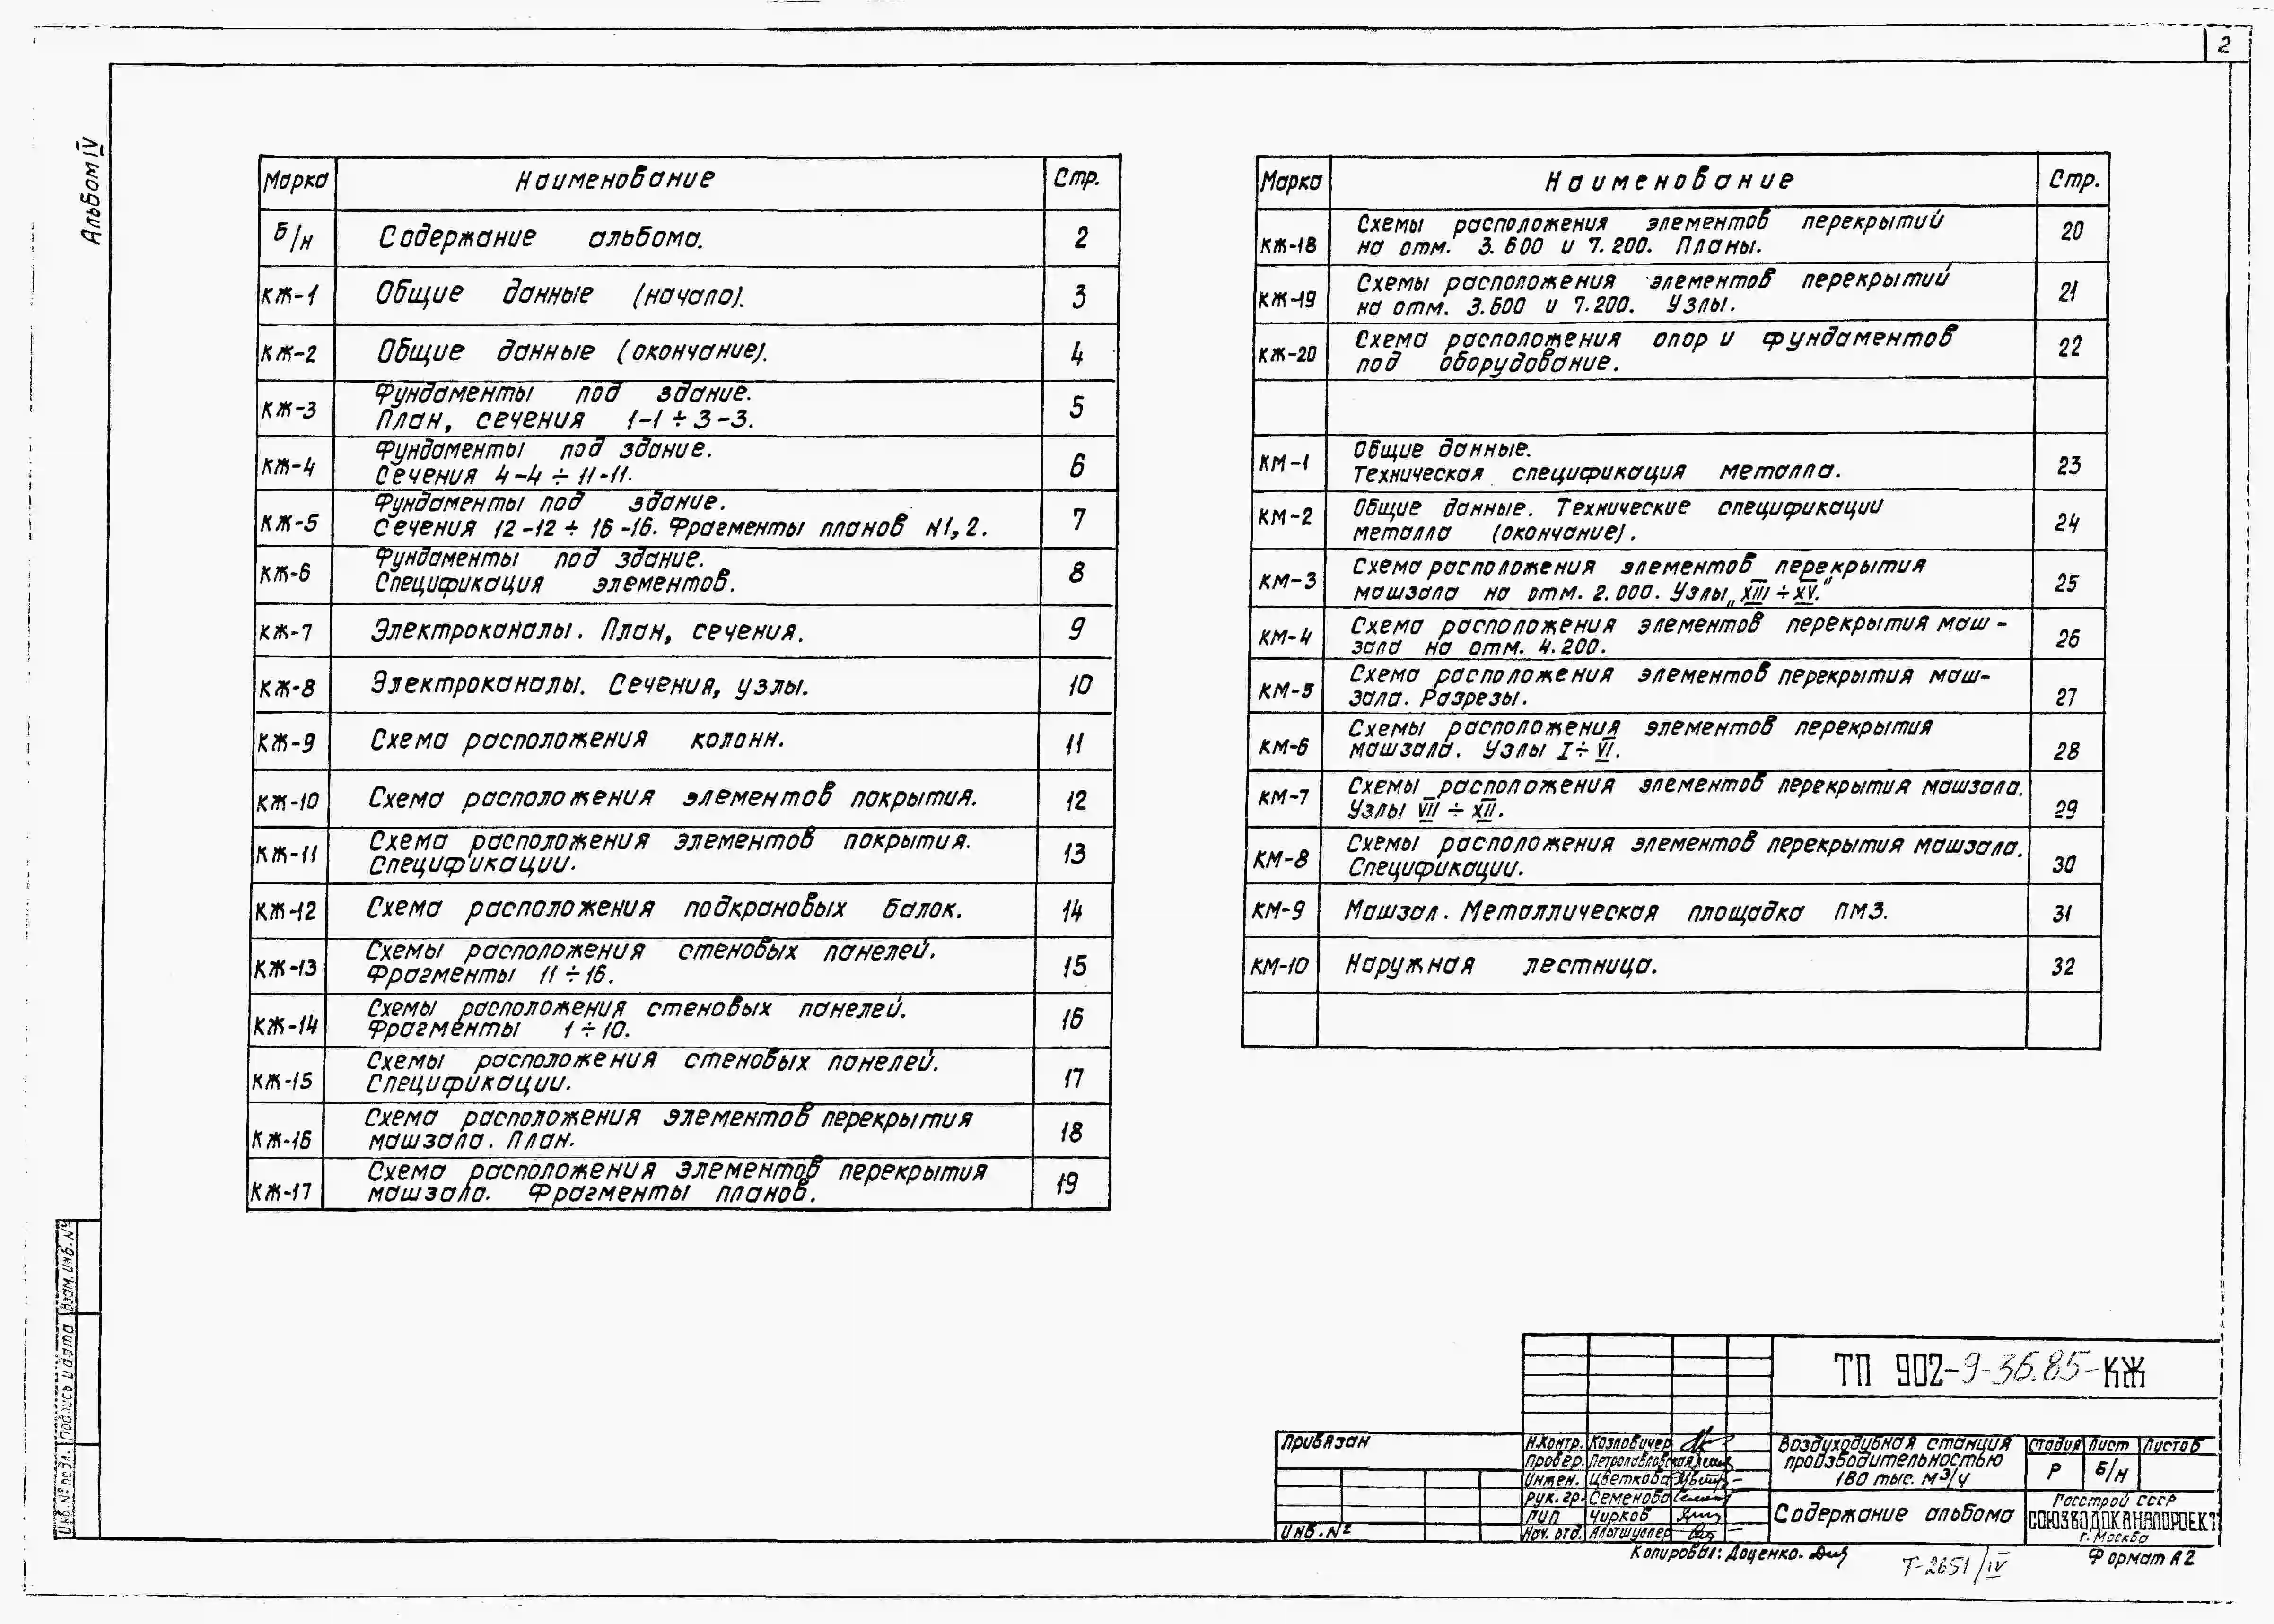 2
Альбом IV
Марка Наименование Стр.
б/н Содержание альбома. 2
КЖ-1 Общие данные (начало). 3
КЖ-2 Общие данные (окончание). 4
КЖ-3 Фундаменты под здание.
План, сечения 1-1 ÷ 3-3. 5
КЖ-4 Фундаменты под здание.
Сечения 4-4 ÷ 11-11. 6
КЖ-5 Фундаменты под здание.
Сечения 12-12 ÷ 16-16. Фрагменты планов N1,2. 7
КЖ-6 Фундаменты под здание.
Спецификация элементов. 8
КЖ-7 Электроканалы. План, сечения. 9
КЖ-8 Электроканалы. Сечения, узлы. 10
КЖ-9 Схема расположения колонн. 11
КЖ-10 Схема расположения элементов покрытия. 12
КЖ-11 Схема расположения элементов покрытия.
Спецификации. 13
КЖ-12 Схема расположения подкрановых балок. 14
КЖ-13 Схемы расположения стеновых панелей.
Фрагменты 11 ÷ 16. 15
КЖ-14 Схемы расположения стеновых панелей.
Фрагменты 1 ÷ 10. 16
КЖ-15 Схемы расположения стеновых панелей.
Спецификации. 17
КЖ-16 Схема расположения элементов перекрытия
машзала. План. 18
КЖ-17 Схема расположения элементов перекрытия
машзала. Фрагменты планов. 19
Марка Наименование Стр.
КЖ-18 Схемы расположения элементов перекрытий
на отм. 3.600 и 7.200. Планы. 20
КЖ-19 Схемы расположения элементов перекрытий
на отм. 3.600 и 7.200. Узлы. 21
КЖ-20 Схема расположения опор и фундаментов
под оборудование. 22
КМ-1 Общие данные.
Техническая спецификация металла. 23
КМ-2 Общие данные. Технические спецификации
металла (окончание). 24
КМ-3 Схема расположения элементов перекрытия
машзала на отм. 2.000. Узлы „XIII ÷ XV." 25
КМ-4 Схема расположения элементов перекрытия маш-
зала на отм. 4.200. 26
КМ-5 Схема расположения элементов перекрытия маш-
зала. Разрезы. 27
КМ-6 Схемы расположения элементов перекрытия
машзала. Узлы I ÷ VI. 28
КМ-7 Схемы расположения элементов перекрытия машзала.
Узлы VII ÷ XII. 29
КМ-8 Схемы расположения элементов перекрытия машзала.
Спецификации. 30
КМ-9 Машзал. Металлическая площадка ПМ3. 31
КМ-10 Наружная лестница. 32
Взам. инв. №
Подпись и дата
Инв. № подл.
ТП 902-9-36.85-КЖ
Привязан
Инв. №
Н.контр. Козловичер
Провер. Петропавловская
Инжен. Цветкова
Рук. гр. Семенова
ГИП Чирков
Нач. отд. Альтшулер
Воздуходувная станция
производительностью
180 тыс. м3/ч
Стадия Лист Листов
Р б/н
Содержание альбома
Госстрой СССР
СОЮЗВОДОКАНАЛПРОЕКТ
г. Москва
Копировал: Доценко.
Т-2651/IV
Формат А2